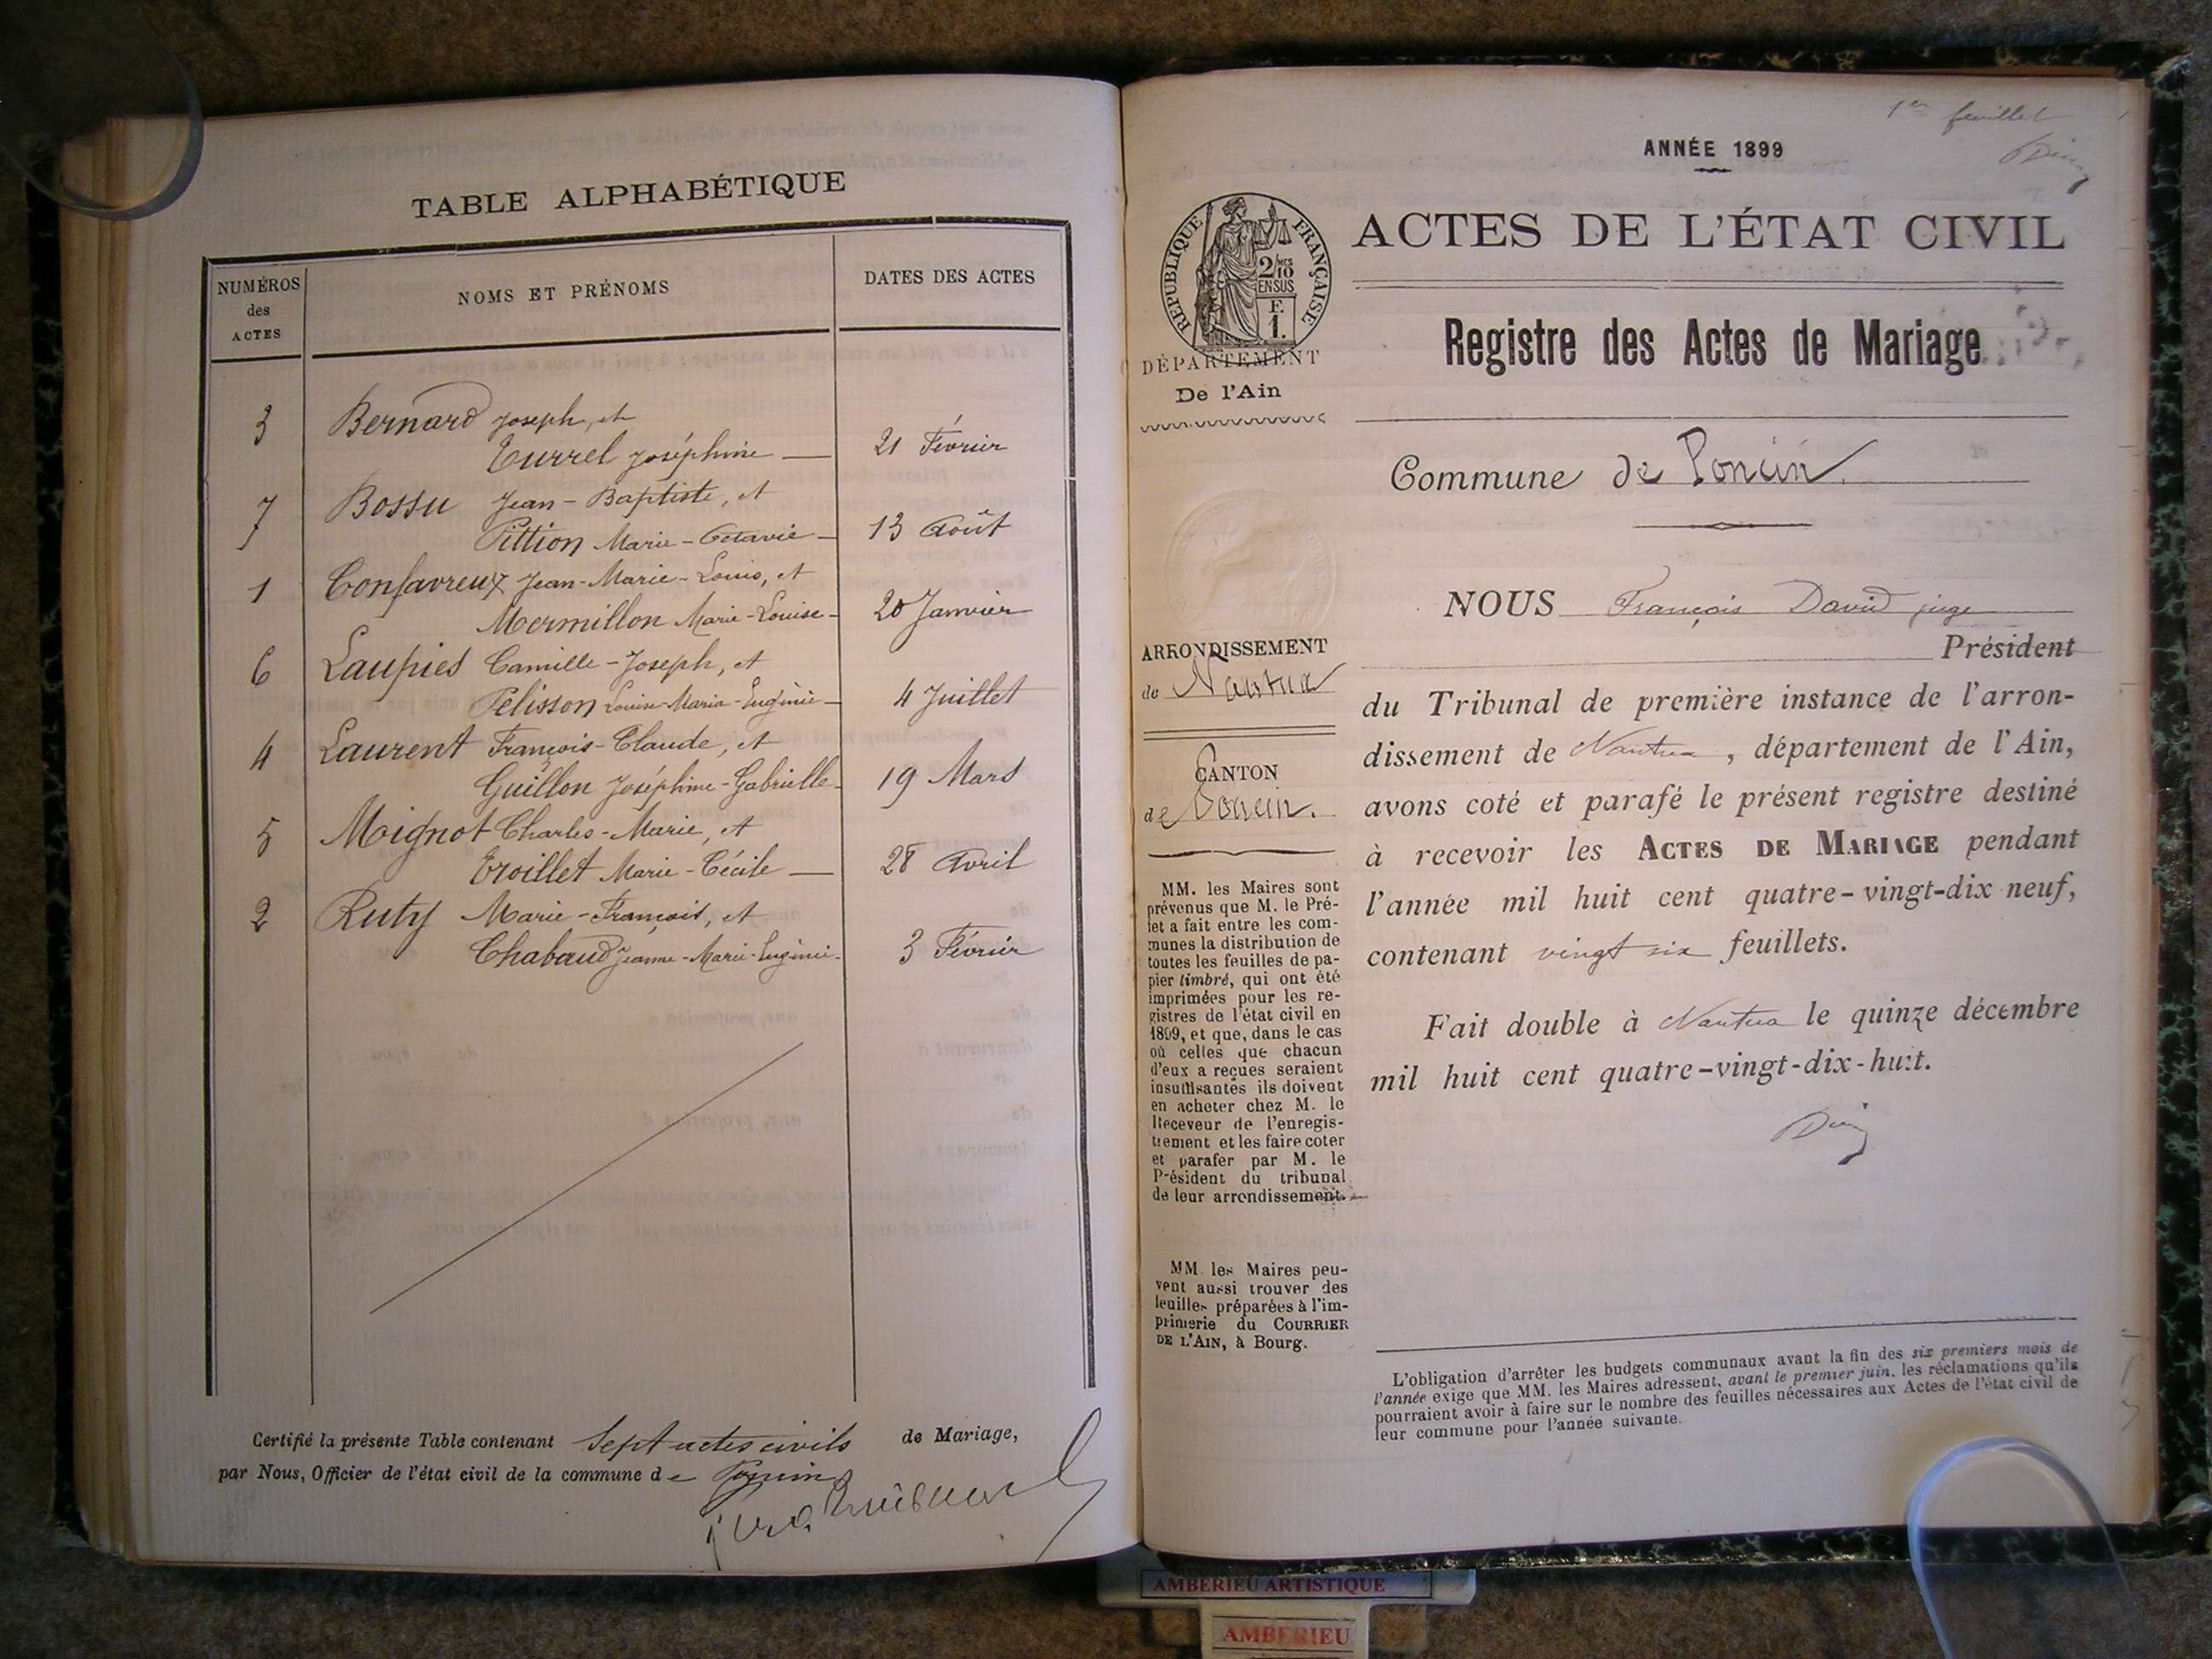 TABLE ALPHABÉTIQUE
NUMÉROS
des
ACTES
NOMS ET PRÉNOMS
DATES DES ACTES
3 Bernard Joseph, et
Turrel Joséphine — 21 Février
7 Bossu Jean-Baptiste, et
Pittion Marie-Octavie — 13 Août
1 Confavreux Jean-Marie-Louis, et
Mermillon Marie-Louise - 20 Janvier
6 Laupies Camille-Joseph, et
Pélisson Louise-Maria-Eugénie - 4 Juillet
4 Laurent François-Claude, et
Guillon Joséphine-Gabrielle - 19 Mars
5 Moignot Charles-Marie, et
Troillet Marie-Cécile — 28 Avril
2 Ruty Marie-François, et
Chabaud Jeanne-Marie-Eugénie - 3 Février
Certifié la présente Table contenant Sept actes civils de Mariage,
par Nous, Officier de l'état civil de la commune de Poncin
1er feuillet
ANNÉE 1899
RÉPUBLIQUE FRANÇAISE
2/10 MES
EN SUS
F.
1.
ACTES DE L'ÉTAT CIVIL
Registre des Actes de Mariage
DÉPARTEMENT
De l'Ain
Commune de Poncin
ARRONDISSEMENT
de Nantua
CANTON
de Poncin.
MM. les Maires sont
prévenus que M. le Pré-
fet a fait entre les com-
munes la distribution de
toutes les feuilles de pa-
pier timbré, qui ont été
imprimées pour les re-
gistres de l'état civil en
1899, et que, dans le cas
où celles que chacun
d'eux a reçues seraient
insuffisantes ils doivent
en acheter chez M. le
Receveur de l'enregis-
trement et les faire coter
et parafer par M. le
Président du tribunal
de leur arrondissement.
MM. les Maires peu-
vent aussi trouver des
feuilles préparées à l'im-
primerie du COURRIER
DE L'AIN, à Bourg.
NOUS François David juge
Président
du Tribunal de première instance de l'arron-
dissement de Nantua, département de l'Ain,
avons coté et parafé le présent registre destiné
à recevoir les ACTES DE MARIAGE pendant
l'année mil huit cent quatre-vingt-dix neuf,
contenant vingt six feuillets.
Fait double à Nantua le quinze décembre
mil huit cent quatre-vingt-dix-huit.
L'obligation d'arrêter les budgets communaux avant la fin des six premiers mois de
l'année exige que MM. les Maires adressent, avant le premier juin, les réclamations qu'ils
pourraient avoir à faire sur le nombre des feuilles nécessaires aux Actes de l'état civil de
leur commune pour l'année suivante.
AMBERIEU ARTISTIQUE
AMBERIEU